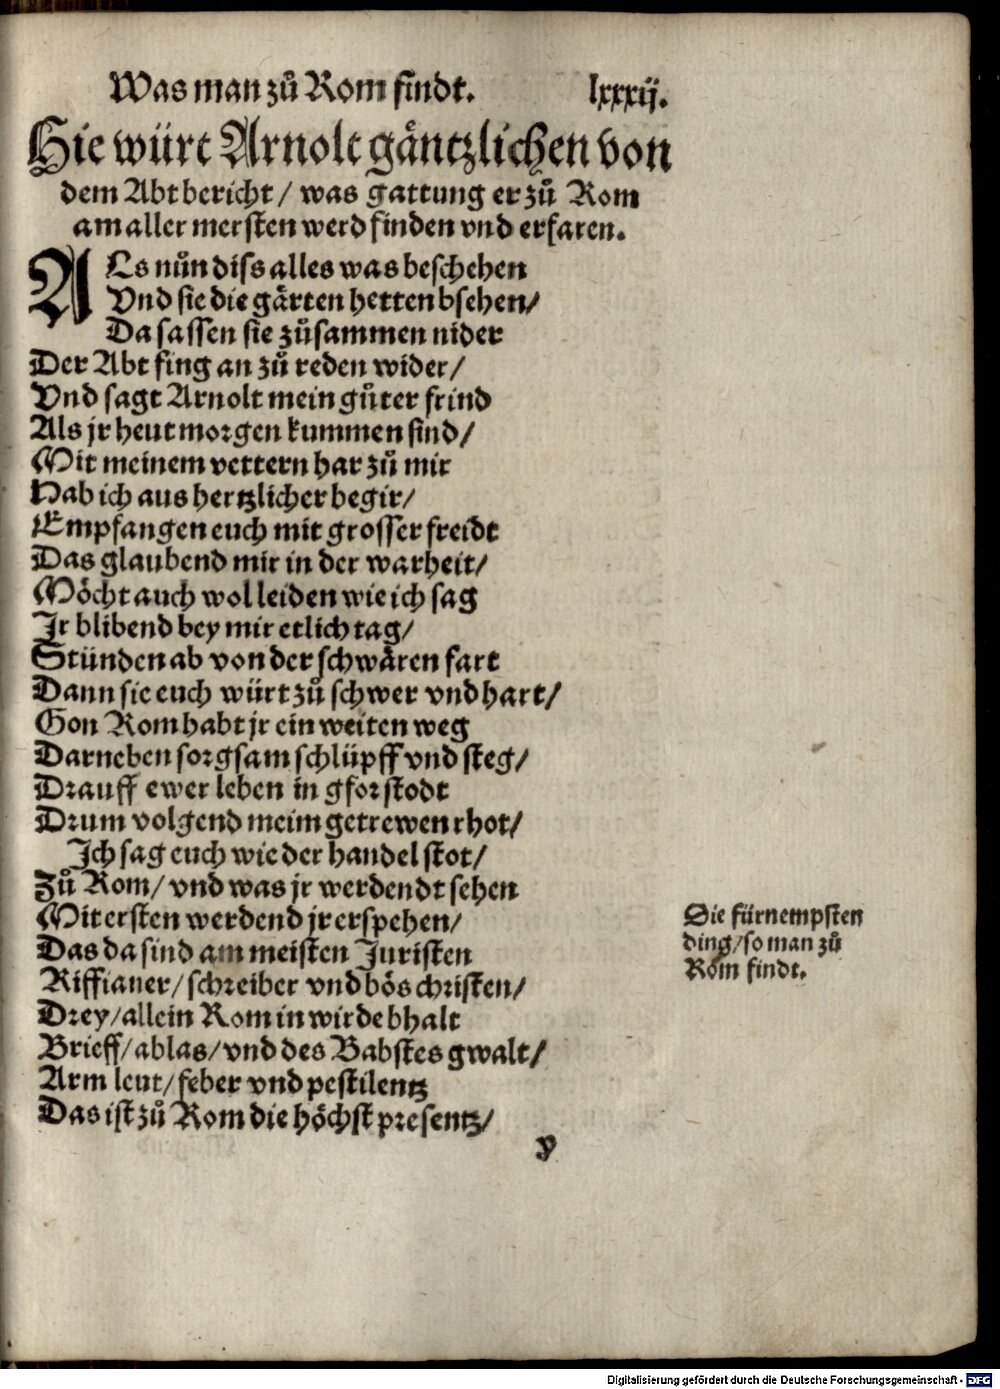 Was man zuͦ Rom findt. lxxxij.
Hie würt Arnolt gäntzlichen von
dem Abt bericht / was gattung er zuͦ Rom
am aller mersten werd finden vnd erfaren.
ALs nuͦn diss alles was beschehen
Vnd sie die gärten hetten bsehen /
Da sassen sie zuͦsammen nider
Der Abt fing an zuͦ reden wider /
Vnd sagt Arnolt mein guͦter frind
Als jr heut morgen kummen sind /
Mit meinem vettern har zuͦ mir
Hab ich aus hertzlicher begir /
Empfangen euch mit grosser freidt
Das glaubend mir in der warheit /
Möcht auch wol leiden wie ich sag
Jr blibend bey mir etlich tag /
Stünden ab von der schwären fart
Dann sie euch würt zuͦ schwer vnd hart /
Gon Rom habt jr ein weiten weg
Darneben sorgsam schlüpff vnd steg /
Drauff ewer leben in gfor stodt
Drum volgend meim getrewen rhot /
Jch sag euch wie der handel stot /
Zuͦ Rom / vnd was jr werdendt sehen
Mit ersten werdend jr erspehen /
Das da sind am meisten Juristen
Riffianer / schreiber vnd bös christen /
Drey / allein Rom in wirde bhalt
Brieff / ablas / vnd des Babstes gwalt /
Arm leut / feber vnd pestilentz
Das ist zuͦ Rom die höchst presentz /
Die fürnempsten
ding / so man zuͦ
Rom findt.
y
Digitalisierung gefördert durch die Deutsche Forschungsgemeinschaft - DFG